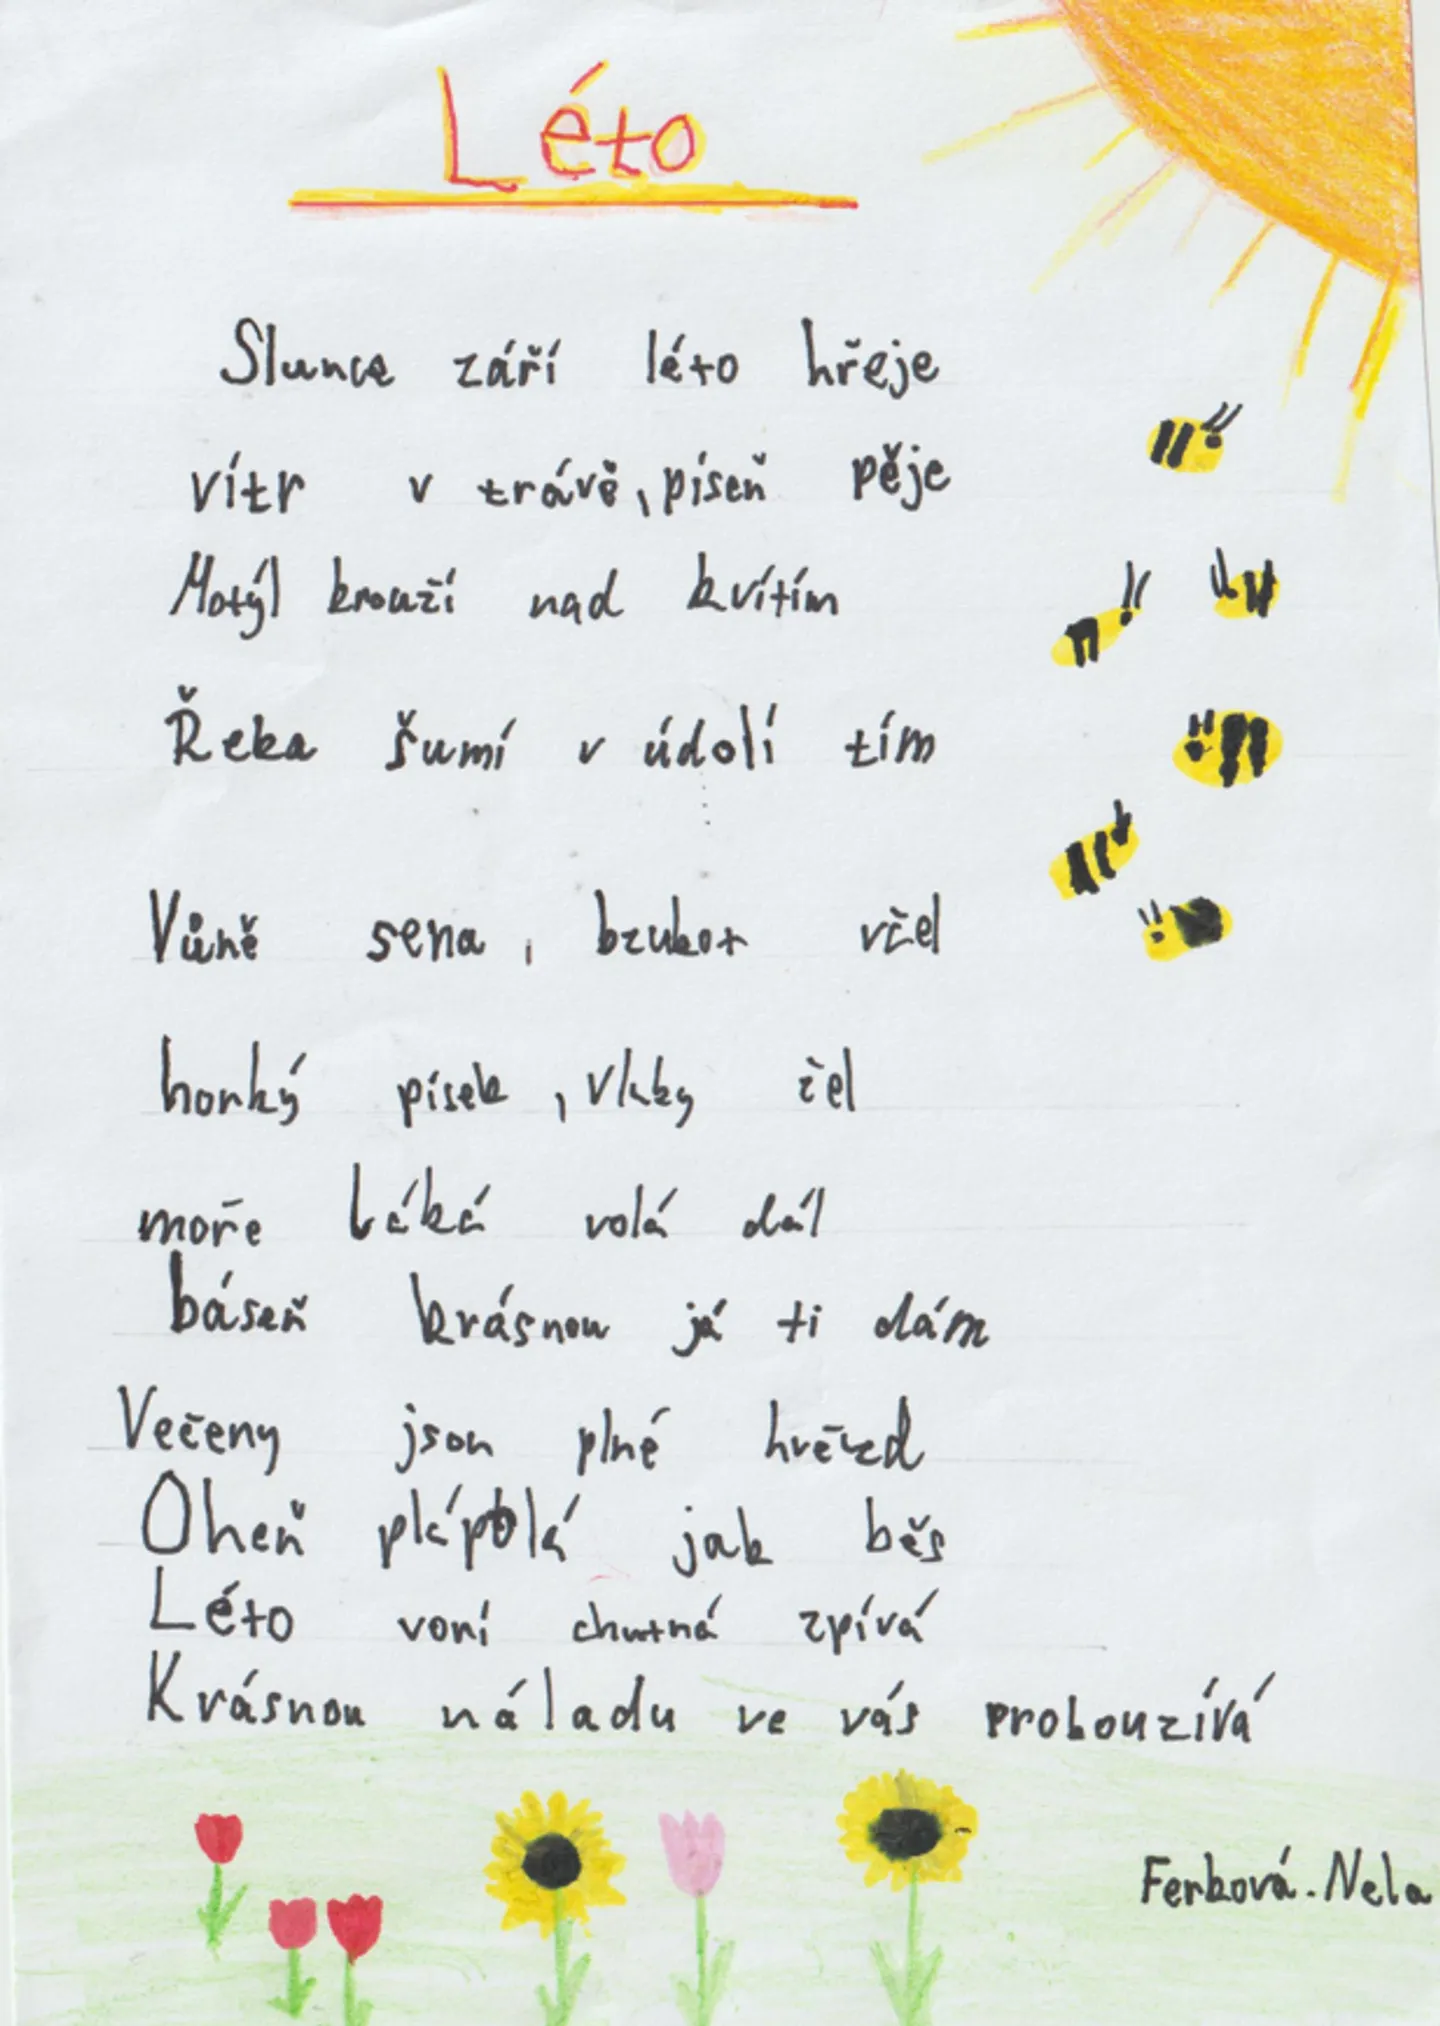 Léto
Slunce září léto hřeje
vítr v trávě, píseň pěje
Motýl krouží nad kvítím
Řeka šumí v údolí tím
Vůně sena, bzukot včel
horký písek, vlkky čel
moře láká volá dál
báseň krásnou já ti dám
Večeny jsou plné hvězd
Oheň plápolá jak běs
Léto voní chutná zpívá
Krásnou náladu ve vás probouzívá
Ferbová. Nela